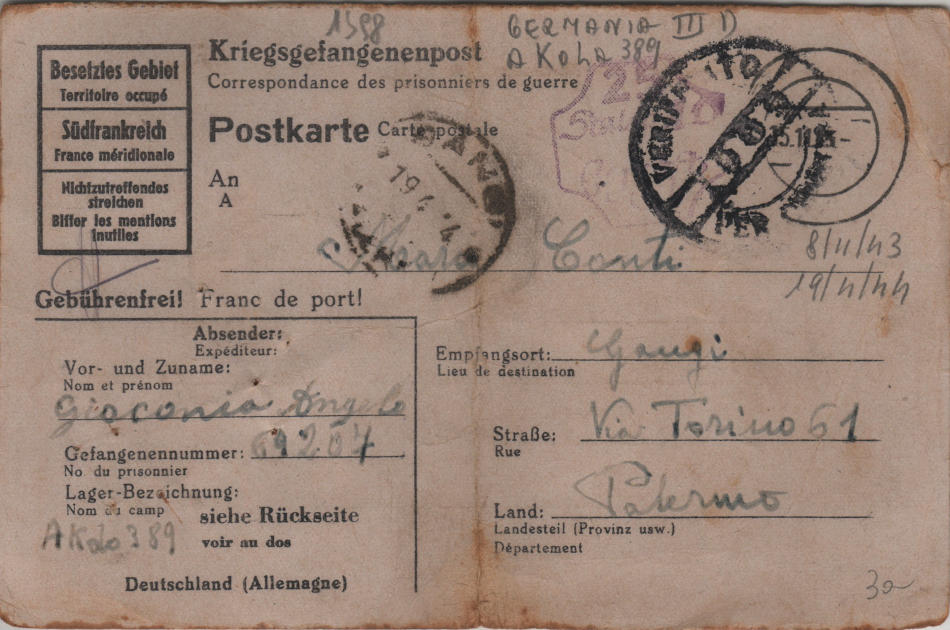 1598
GERMANIA III D
AKdo 389
Besetztes Gebiet
Territoire occupé
Südfrankreich
France méridionale
Nichtzutreffendes
streichen
Biffer les mentions
inutiles
Kriegsgefangenenpost
Correspondance des prisonniers de guerre
Postkarte Carte postale
An
A
VERIFICATO PER
GANGI
19 4
Conti
8/11/43
19/4/44
Gebührenfrei! Franc de port!
Absender:
Expéditeur:
Vor- und Zuname:
Nom et prénom
Giaconia Angelo
Gefangenennummer: 69204
No du prisonnier
Lager-Bezeichnung:
Nom du camp
siehe Rückseite
voir au dos
AKdo 389
Deutschland (Allemagne)
Empfangsort: Gangi
Lieu de destination
Straße: Via Torino 61
Rue
Land: Palermo
Landesteil (Provinz usw.)
Département
30